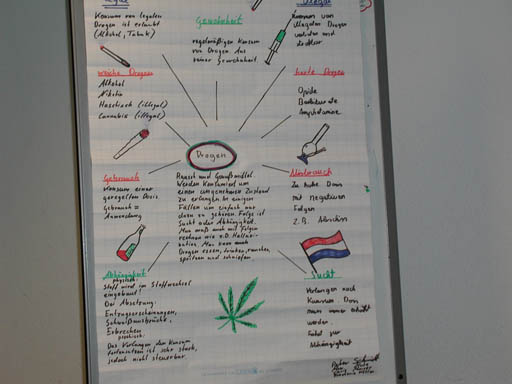 Legal
Konsum von legalen
Drogen ist erlaubt
(Alkohol, Tabak)
Gewohnheit
regelmäßigen Konsum
von Drogen aus
reiner Gewohnheit
Illegal
Konsum von
illegalen Drogen
verboten und
strafbar
weiche Drogen
Alkohol
Nikotin
Haschisch (illegal)
Cannabis (illegal)
harte Drogen
Opiate
Barbiturate
Amphetamine
Drogen
Gebrauch
Konsum einer
geregelten Dosis
Gebrauch =
Anwendung
Rausch und Genußmittel.
Werden konsumiert um
einen angenehmen Zustand
zu erlangen. In einigen
Fällen um einfach nur
dazu zu gehören. Folge ist
Sucht oder Abhängigkeit.
Man muß auch mit Folgen
rechnen wie z.B. Halluzi-
nation. Man kann auch
Drogen essen, trinken, rauchen,
spritzen und schniefen.
Missbrauch
Zu hohe Dosis
mit negativen
Folgen
z.B. Absturz
Abhängigkeit
physisch:
Stoff wird im Stoffwechsel
eingebaut!
Bei Absetzung:
Entzugserscheinungen,
Schweißausbrüche,
Erbrechen
psychisch:
Das Verlangen den Konsum
fortzusetzen ist sehr stark,
jedoch nicht steuerbar.
Sucht
Verlangen nach
Konsum. Dosis
muss immer erhöht
werden.
Führt zur
Abhängigkeit